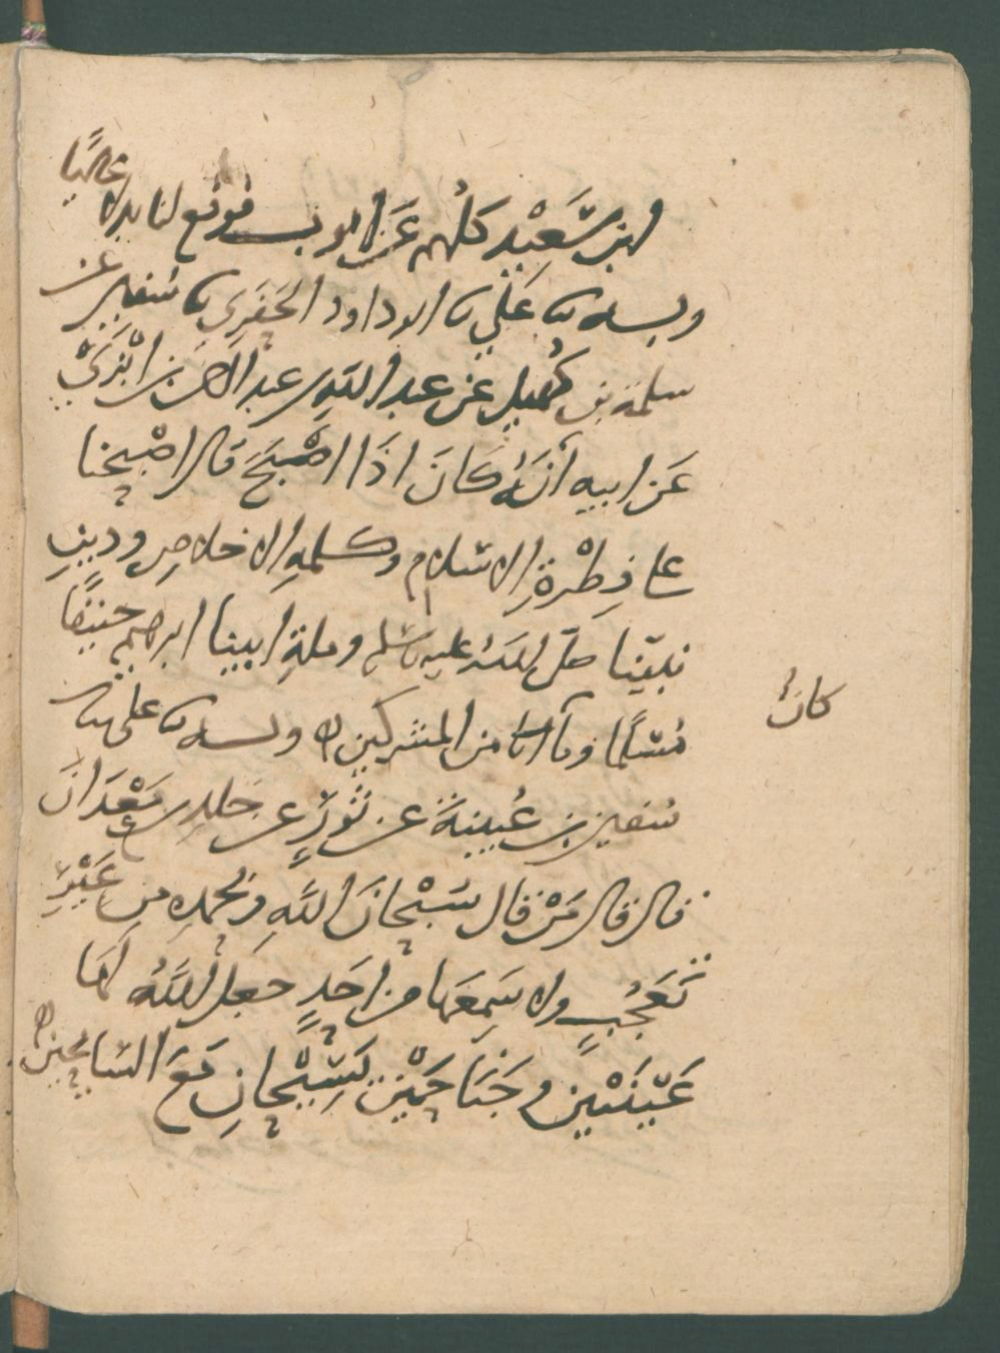 ابن سَعِيْد كلُّهم عَن ايوب فوقع لنا بدلا عاليًا
وبه نا عَلي نا ابو داود الحَفَرِي نا سُفين عن
سلمة بن كُهيل عن عبد الله بن عبد الرحمن بن ابْزَيْ
عَن ابيه أنَّهُ كانَ اذَا اصْبَحَ قال اصْبحنا
على فِطْرةِ الاسلام وكلمةِ الاخلاصِ ودينِ
نبيّنا صلى اللهُ عليه وسلم وملةِ ابينا ابرهيم حنيفًا
مُسْلمًا وما كان من المشركين ه وبه نا على نا
سُفين بن عُيينةَ عن ثَورٍ عن خلدِ بن مَعْدَانَ
قال قال مَنْ قال سُبْحانَ اللهِ وبحمدِه من غَيْرِ
تَعَجُّبٍ ولا يَسمعها من احَدٍ جعل اللهُ لَهَا
عَيْنَيْنِ وجَنَاحَيْنِ تُسَبِّحانِ مَعَ المسبحين ه
كانَ